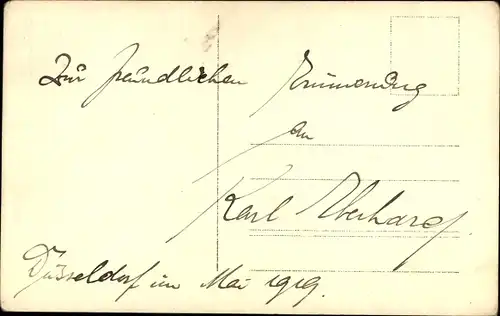 Zur freundlichen Erinnerung
an
Karl Eberhard.
Düsseldorf im Mai 1919.